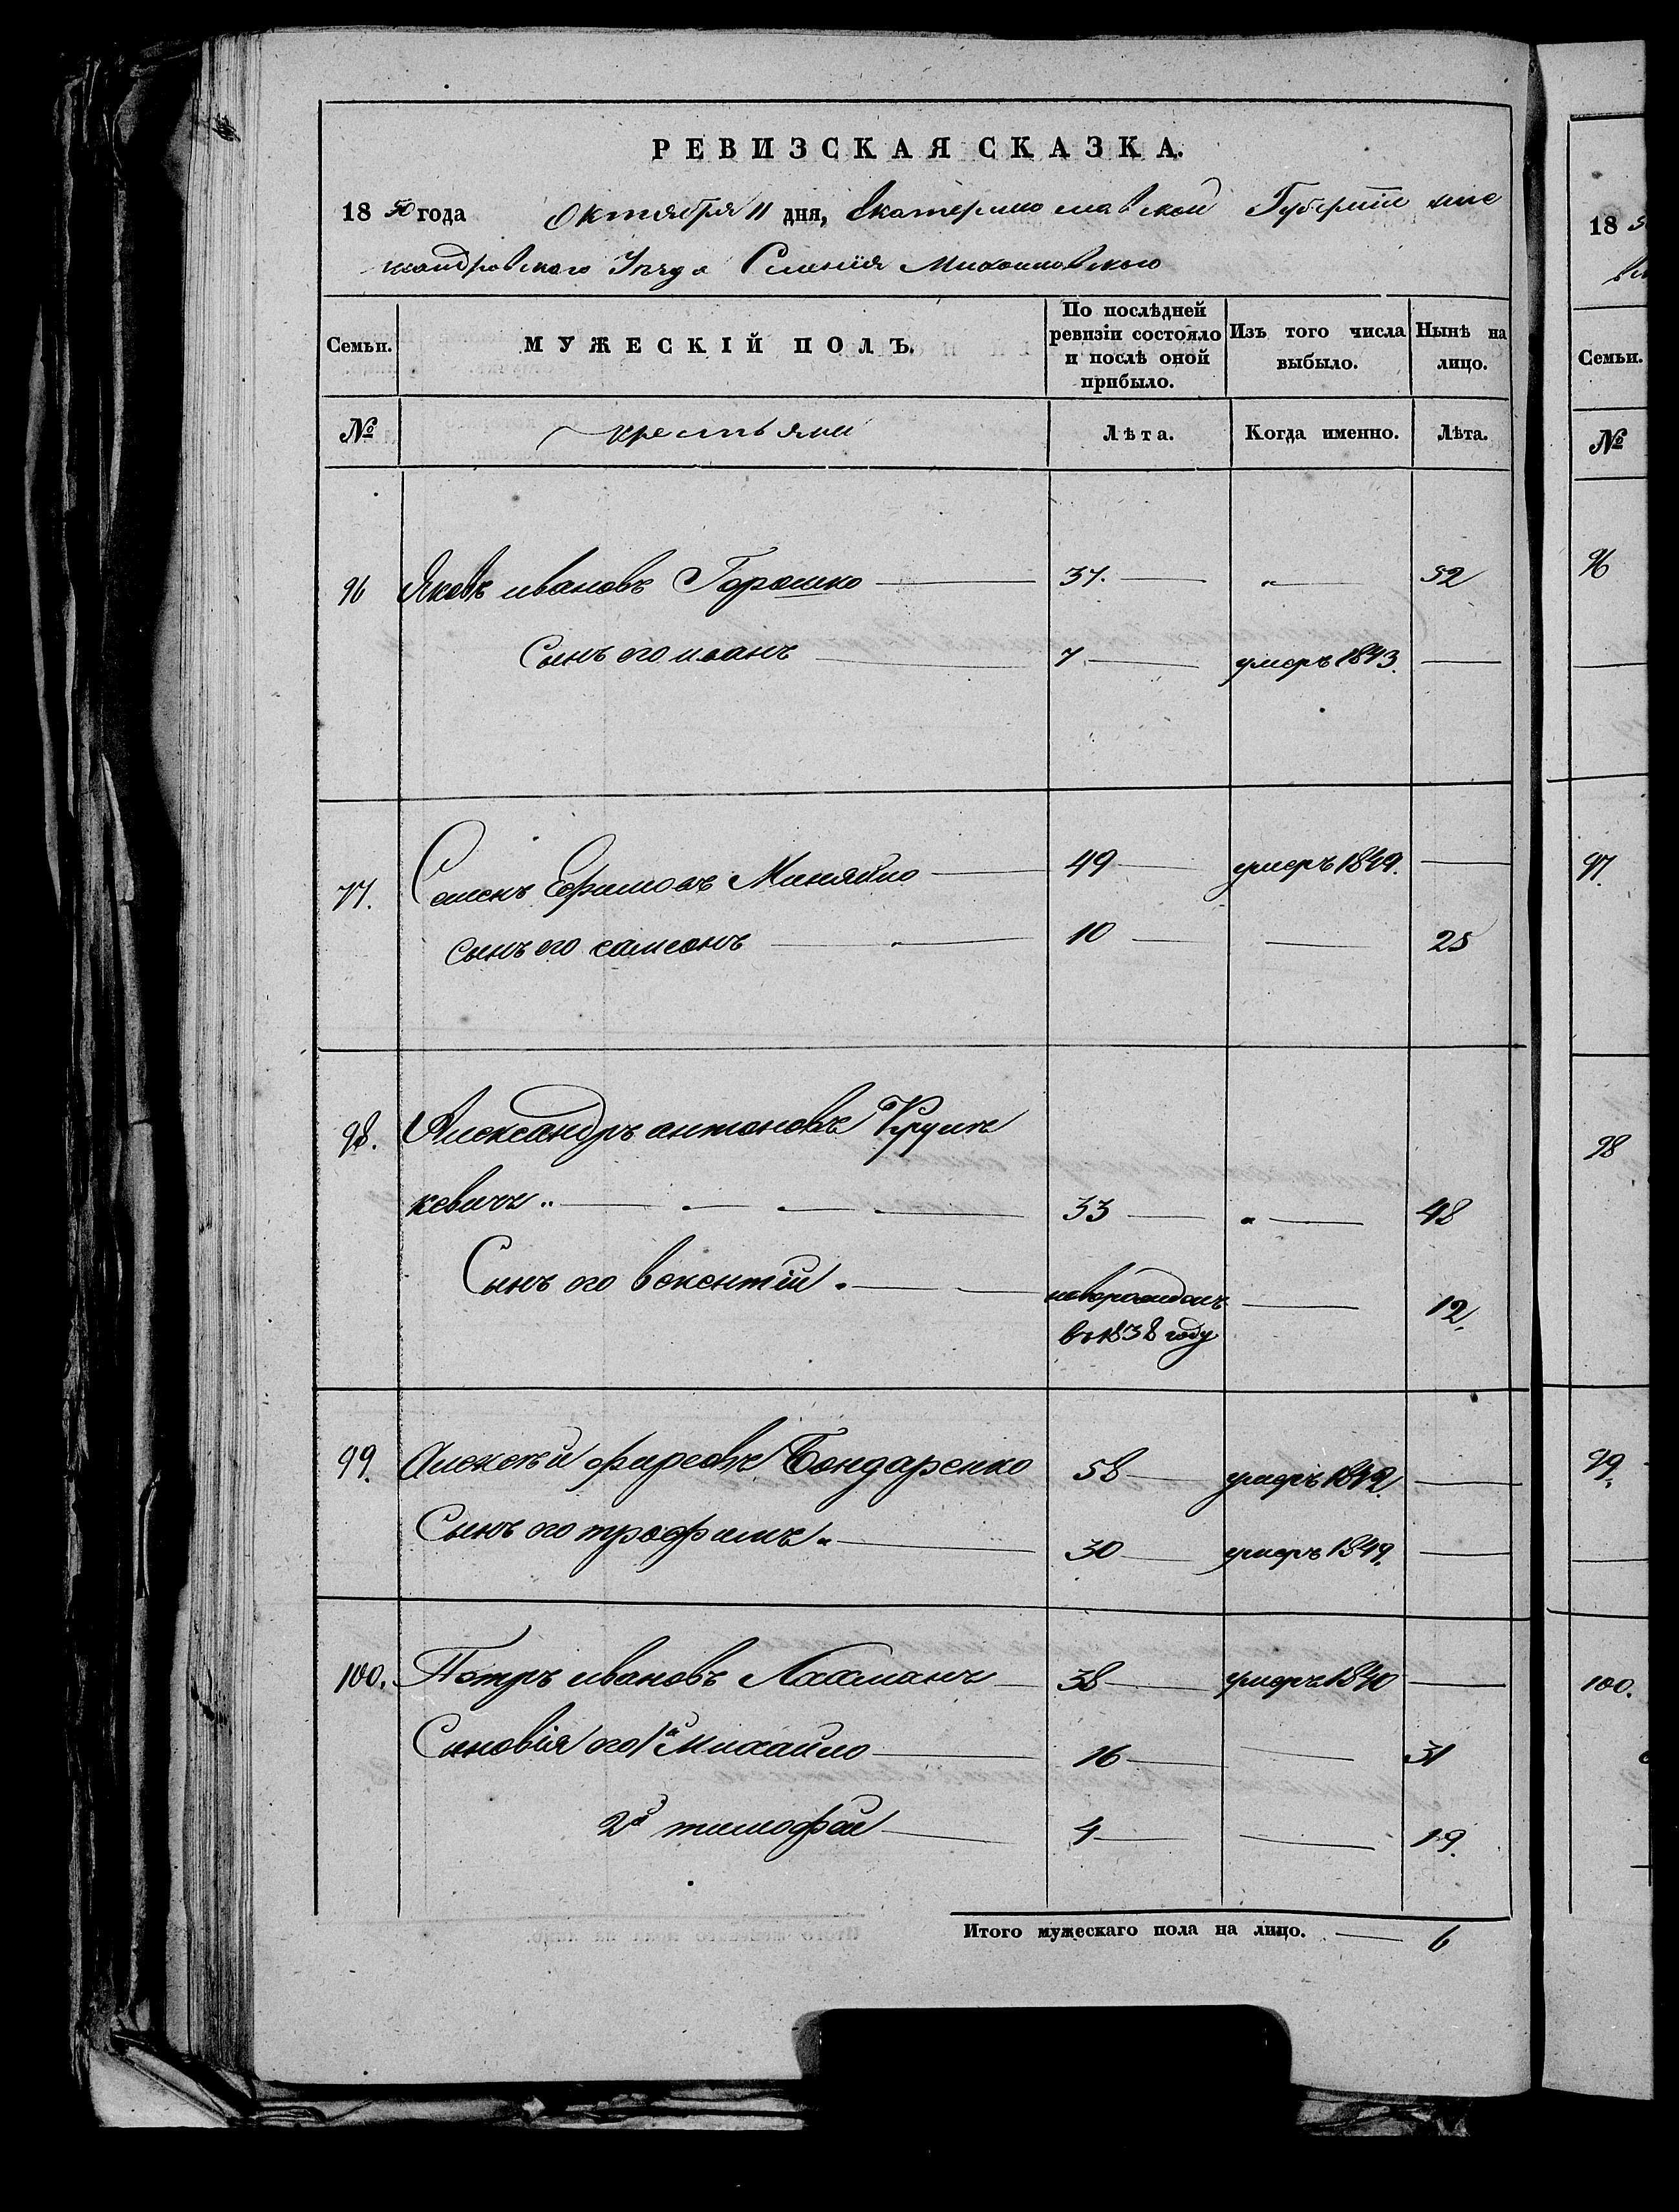 РЕВИЗСКАЯ СКАЗКА.
1850 года Октября 11 дня, Екатеринославской Губернии Але
ксандровского Уезда Селения Михайловского
Семьи. МУЖЕСКІЙ ПОЛЪ. По послѣдней ревизіи состояло и послѣ оной прибыло. Изъ того числа выбыло. Нынѣ на лицо.
№ крестьяни Лѣта. Когда именно. Лѣта.
96 Яковъ ивановъ Горошко 37. " 52
Сынъ его иванъ 7. умеръ 1843.
97. Семенъ Ефимовъ Миняйло 49 умеръ 1849.
сынъ его самсонъ 10 25
98. Александръ антоновъ Крум
кевичъ 33 " 48
Сынъ его векентій новорожденъ 12.
въ 1838 году
99. Алексей фирсовъ Бондаренко 58 умеръ 1842.
Сынъ его трофимъ 30 умеръ 1849.
100. Петръ ивановъ Лахманъ 38 умеръ 1840
Сыновія его 1й Михайло 16 31
2й тимофей 4 19.
Итого мужескаго пола на лицо. 6
18 5
Семьи.
№
96
97.
98
99.
100.